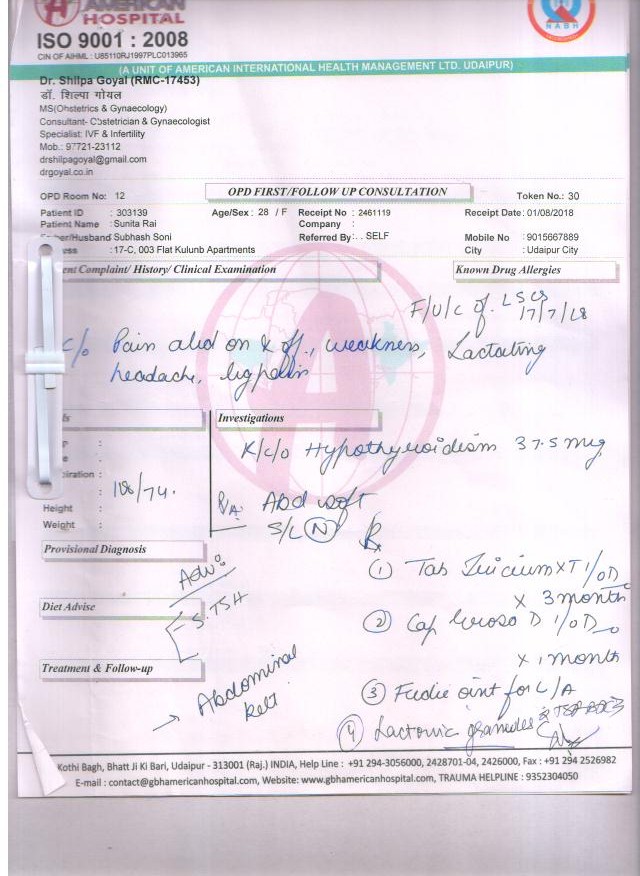 AMERICAN
HOSPITAL
NABH
ISO 9001 : 2008
CIN OF AIHML : U85110RJ1997PLC013965
(A UNIT OF AMERICAN INTERNATIONAL HEALTH MANAGEMENT LTD. UDAIPUR)
Dr. Shilpa Goyal (RMC-17453)
डॉ. शिल्पा गोयल
MS(Obstetrics & Gynaecology)
Consultant- Obstetrician & Gynaecologist
Specialist: IVF & Infertility
Mob.: 97721-23112
drshilpagoyal@gmail.com
drgoyal.co.in
OPD Room No: 12
OPD FIRST/FOLLOW UP CONSULTATION
Token No.: 30
Patient ID : 303139 Age/Sex : 28 / F Receipt No : 2461119 Receipt Date : 01/08/2018
Patient Name : Sunita Rai Company :
/Husband Subhash Soni Referred By : . . SELF Mobile No : 9015667889
ess : 17-C, 003 Flat Kulunb Apartments City : Udaipur City
ent Complaint/ History/ Clinical Examination Known Drug Allergies
F/U/C of LSCS
17/7/18
C/o Pain abd on & off, weakness, Lactating
headache, leg pain
Investigations
K/c/o Hypothyroidism 37.5 mcg
iration :
108/74.
P/A: Abd soft
S/L (N)
Height :
Weight :
Rx
Provisional Diagnosis
Adv:
① Tab x 1/OD
x 3 month
Diet Advise
S.TSH
② Cap D 1/OD
x 1 month
Treatment & Follow-up
→ Abdominal
Belt
③ oint for L/A
④ Lactonic granules
Kothi Bagh, Bhatt Ji Ki Bari, Udaipur - 313001 (Raj.) INDIA, Help Line : +91 294-3056000, 2428701-04, 2426000, Fax : +91 294 2526982
E-mail : contact@gbhamericanhospital.com, Website: www.gbhamericanhospital.com, TRAUMA HELPLINE : 9352304050